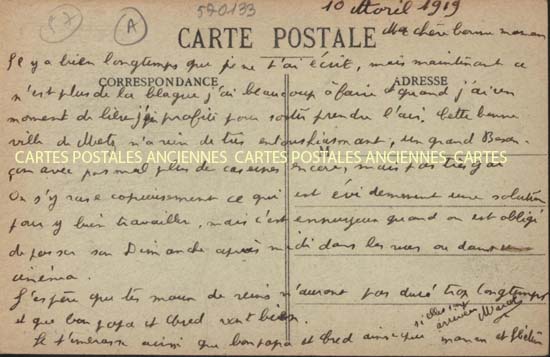 57
A
520133
10 Avril 1919
Ma chère bonne maman
CARTE POSTALE
Il y a bien longtemps que je ne t'ai écrit, mais maintenant ce
CORRESPONDANCE
ADRESSE
n'est plus de la blague j'ai beaucoup à faire et quand j'ai un
moment de libre j'en profite pour sortir prendre l'air. Cette bonne
ville de Metz n'a rien de très enthousiasmant, un grand Besan-
CARTES POSTALES ANCIENNES CARTES POSTALES ANCIENNES CARTES
çon avec pas mal plus de casernes encore, mais pas très gai
On s'y rase copieusement ce qui est évidemment une solution
pour y bien travailler, mais c'est ennuyeux quand on est obligé
de passer son Dimanche après midi dans les rues ou dans un
cinéma.
J'espère que tes maux de reins n'auront pas duré trop longtemps
et que bon papa et vont bien.
Je t'embrasse ainsi que bon papa et ainsi que maman et